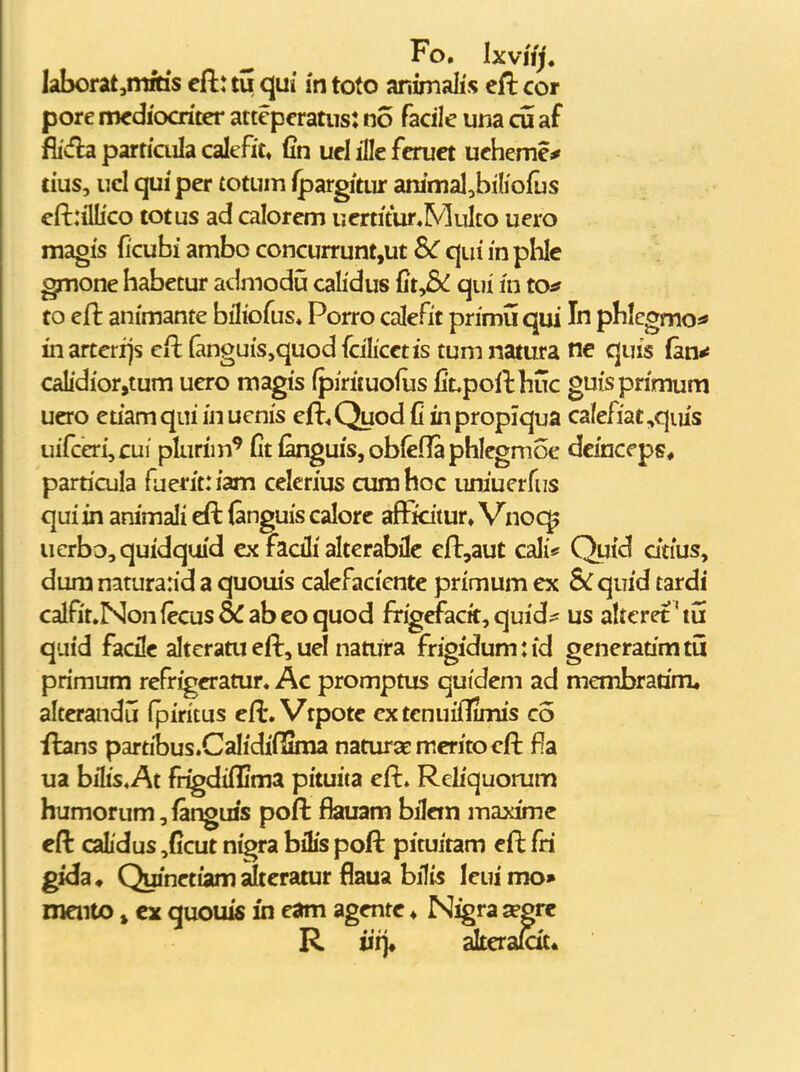 Fo. lxviij.
laborat,mitis est: tū qui in toto animalis est cor
pore mediocriter attēperatus: nō facile una cū af
flicta particula calefit. sin uel ille feruet uehemē⸗
tius, uel qui per totum spargitur animal,biliosus
est:illico totus ad calorem uertitur.Multo uero
magis sicubi ambo concurrunt,ut & qui in phle
gmone habetur admodū calidus sit,& qui in to⸗
to est animante biliosus. Porro calefit primū qui
in arterijs est sanguis,quod scilicet is tum natura
calidior,tum uero magis spirituosus sit.post hūc
uero etiam qui in uenis est. Quod si in propīqua
uisceri, cui plurimꝰ sit sanguis, obsessa phlegmōe
particula fuerit: iam celerius cum hoc uniuersus
qui in animali est sanguis calore afficitur. Vnoqꝫ
uerbo, quidquid ex facili alterabile est,aut cali⸗
dum natura:id a quouis calefaciente primum ex
calfit.Non secus & ab eo quod frigefacit, quid⸗
quid facile alteratu est, uel natura frigidum: id
primum refrigeratur. Ac promptus quidem ad
alterandū spiritus est. Vtpote ex tenuissimis cō
stans partibus.Calidissima naturæ merito est fla
ua bilis.At frigdissima pituita est. Reliquorum
humorum, sanguis post flauam bilem maxime
est calidus,sicut nigra bilis post pituitam est fri
gida. Quinetiam alteratur flaua bilis leui mo⸗
mento, ex quouis in eam agente. Nigra ægre
R iiij. alterascit.
In phlegmo⸗
ne quis san⸗
guis primum
calefiat,quis
deinceps.
Quid citius,
& quid tardi
us alteret' tū
generatim tū
membratim.